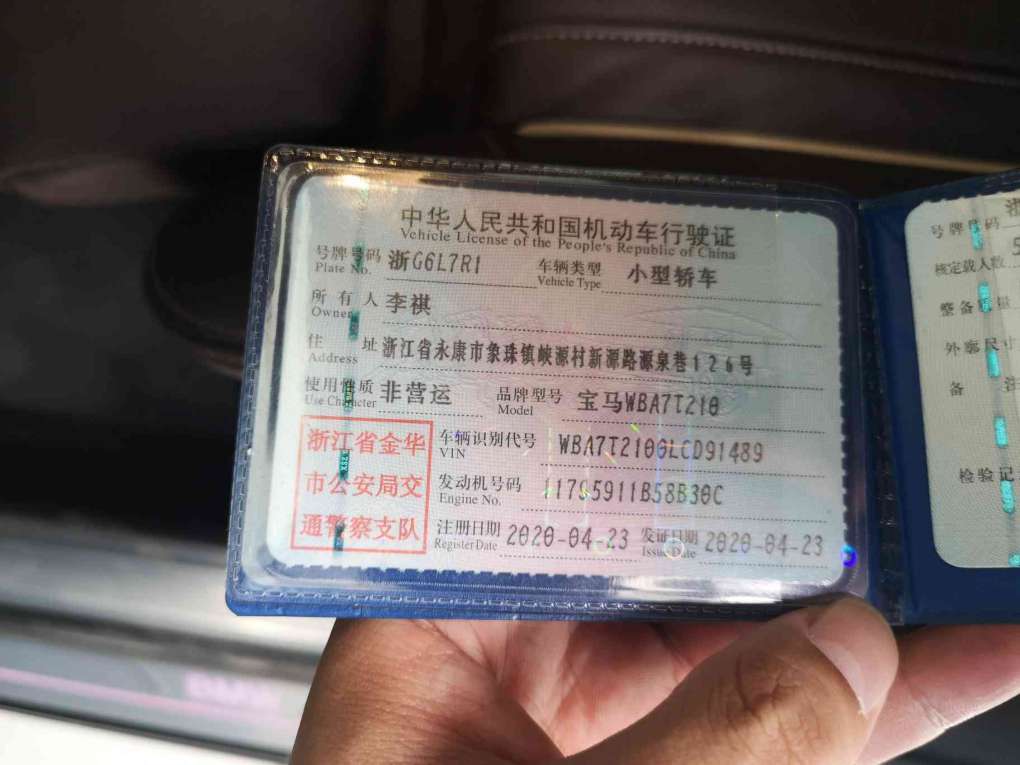 中华人民共和国机动车行驶证
Vehicle License of the People's Republic of China
号牌号码 浙G6L7R1 车辆类型 小型轿车
Plate No. Vehicle Type
所有人 李祺
Owner
住址 浙江省永康市象珠镇峡源村新源路源泉巷126号
Address
使用性质 非营运 品牌型号 宝马WBA7T210
Use Character Model
浙江省金华
市公安局交
通警察支队
车辆识别代号 WBA7T2100LCD91489
VIN
发动机号码 11795911B58B30C
Engine No.
注册日期 2020-04-23 发证日期 2020-04-23
Register Date Issue Date
号牌号码
核定载人数 5
整备质量
外廓尺寸
备
检验记